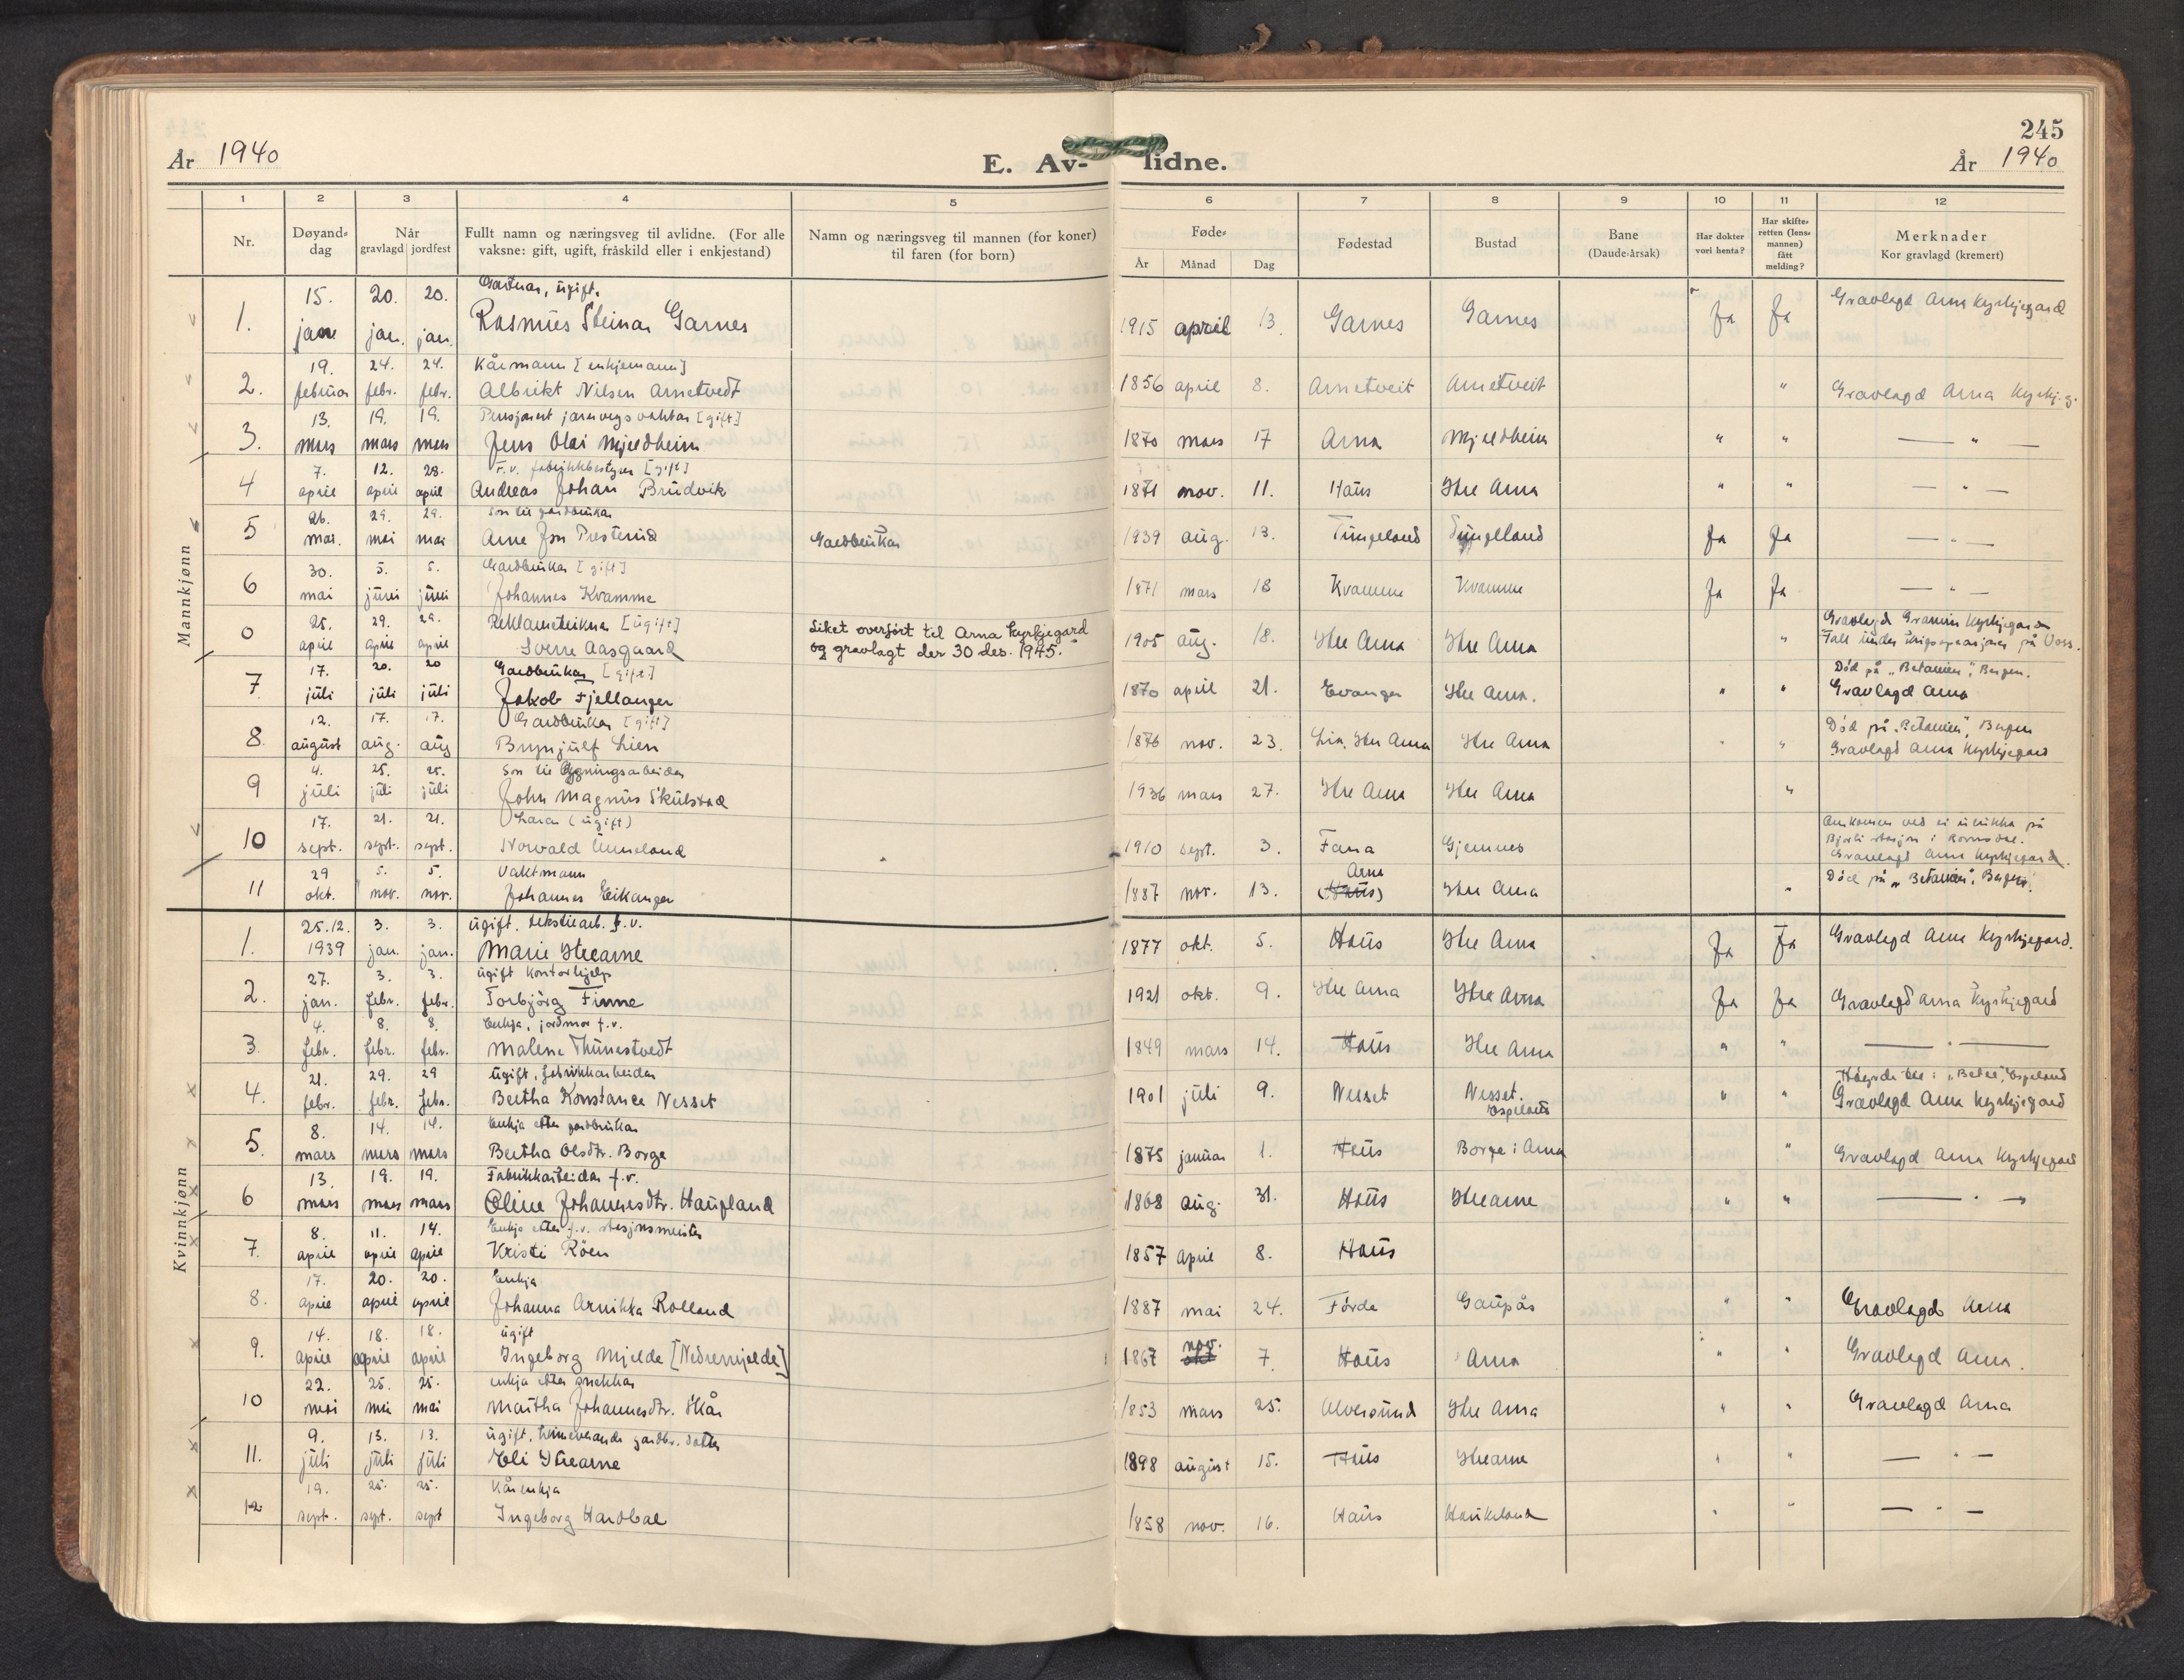 245
År 1940
E. Av- lidne.
År 1940
1 2 3 4 5 6 7 8 9 10 11 12
Nr.
Døyand-
dag
Når
gravlagd jordfest
Fullt namn og næringsveg til avlidne. (For alle
vaksne: gift, ugift, fråskild eller i enkjestand)
Namn og næringsveg til mannen (for koner)
til faren (for born)
Føde-
År Månad Dag
Fødestad
Bustad
Bane
(Daude-årsak)
Har dokter
vori henta?
Har skifte-
retten (lens-
mannen)
fått
melding?
Merknader
Kor gravlagd (kremert)
Mannkjønn
15. 20. 20. ugift.
1. jan jan. jan. Rasmus Steinar Garnes 1915 april 13. Garnes Garnes Ja Ja Gravlagd Arna Kyrkjegard
19. 24. 24. Kårmann [enkjemann]
2. februar febr. febr. Albrikt Nilsen Arnetvedt 1856 april 8. Arnetveit Arnetveit " Gravlagd Arna Kyrkj.g.
13. 19. 19. Pensjonert jarnvegsvaktar [gift]
3. mars mars mars Jens Olai Mjeldheim 1870 mars 17 Arna Mjeldheim " " — " —
7. 12. 28. F.v. fabrikkbestyrer [gift]
4 april april april Andreas Johan Brudvik 1871 nov. 11. Haus Ytre Arna " " — " —
26. 29. 29. Son til gardbrukar
5 mai. mai mai Arne Jon Prestund Gardbrukar 1939 aug. 13. Tungeland Tungelland Ja Ja — " —
30. 5. 5. Gardbrukar [gift]
6 mai juni juni Johannes Kvamme 1871 mars 18 Kvamme Kvamme Ja Ja — " —
25. 29. 29. Reklameteiknar [ugift]
0 april april april Sverre Aasgaard
Liket overført til Arna Kyrkjegard
og gravlagt der 30 des. 1945.
1905 aug. 18. Ytre Arna Ytre Arna "
Gravlagd Kyrkjegard
Fall under krigsoperasjoner på Voss.
17. 20. 20 Gardbrukar [gift]
7. juli juli juli Jakob Fjellanger 1870 april 21. Evanger Ytre Arna. " "
Død på "Betanien", Bergen.
Gravlagd Arna
12. 17. 17. Gardbrukar [gift]
8. august aug. aug Brynjulf Lien 1876 nov. 23. Lia, Ytre Arna Ytre Arna " "
Død på "Betanien", Bergen
Gravlagd Arna Kyrkjegard
4. 25. 25. Son til
9 juli juli juli John Magnus Skulstad 1936 mars 27. Ytre Arna Ytre Arna "
17. 21. 21. Lærar (ugift)
10 sept. sept. sept. Norvald Unneland 1910 sept. 3. Fana Gjemnes
Omkomen ved ei ulukka på
Bjorli stasjon i Romsdal.
Gravlagd Arna Kyrkjegard.
29 5. 5. Vaktmann
11 okt. nov. nov. Johannes Eikanger 1887 nov. 13. Arna (Haus) Ytre Arna " Død på "Betanien", Bergen.
Kvinnkjønn
25.12. 3. 3. ugift. tekstilarb. f.v.
1. 1939 jan. jan. Marie Ytrearne 1877 okt. 5. Haus Ytre Arna Ja Ja Gravlagd Arna Kyrkjegard.
27. 3. 3. ugift kontorhjelp
2. jan. febr. febr. Torbjörg Finne 1921 okt. 9. Ytre Arna Ytre Arna Ja Ja Gravlagd Arna Kyrkjegard
4. 8. 8. Enkja, jordmor f.v.
3. febr. febr. febr. Malene Thunestvedt 1849 mars 14. Haus Ytre Arna " " — " —
21. 29. 29 ugift, fabrikkarbeidar
4. febr. febr. febr. Bertha Konstance Nesset 1901 juli 9. Nesset Nesset. Espeland " "
Espeland
Gravlagd Arna Kyrkjegard
8. 14. 14. Enkja etter gardbrukar
5. mars mars mars Bertha Olsdtr. Borge 1875 januar 1. Haus Borge i Arna " Gravlagd Arna Kyrkjegard
13. 19. 19. Fabrikkarbeidar f.v.
6 mars mars mars Oline Johannesdtr. Haugland 1868 aug. 31. Haus Ytrearne " " — " —
8. 11. 14. Enkja etter f.v. stasjonsmeister
7. april april april Kristi Röen 1857 april 8. Haus
17. 20. 20. Enkja
8. april april april Johanna Arnikka Rolland 1887 mai 24. Förde Gaupås " " Gravlagd Arna
14. 18. 18. ugift
9. april april april Ingeborg Mjelde [Nedremjelde] 1867 nov. 7. Haus Arna " " Gravlagd Arna.
22. 25. 25. enkja etter snekkar
10 mai mai mai Martha Johannesdtr. Skår 1853 mars 25. Alversund Ytre Arna " " Gravlagd Arna
9. 13. 13. ugift, heimeverande gardbr. dotter
11. juli juli juli Eli Ytrearne 1898 august 15. Haus Ytrearne " " — " —
19. 25. 25. Kårenkja
12 sept. sept. sept Ingeborg Hardbal 1858 nov. 16. Haus Haukeland " " — " —